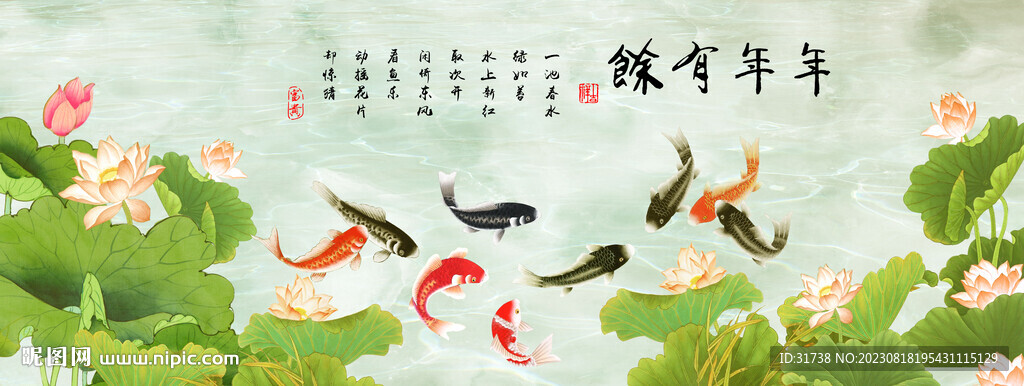 年年有餘
一池春水
绿如苔
水上新红
取次开
闲倚东风
看鱼乐
动摇花片
却惊猜
昵图网 www.nipic.com
ID:31738 NO:20230818195431115129